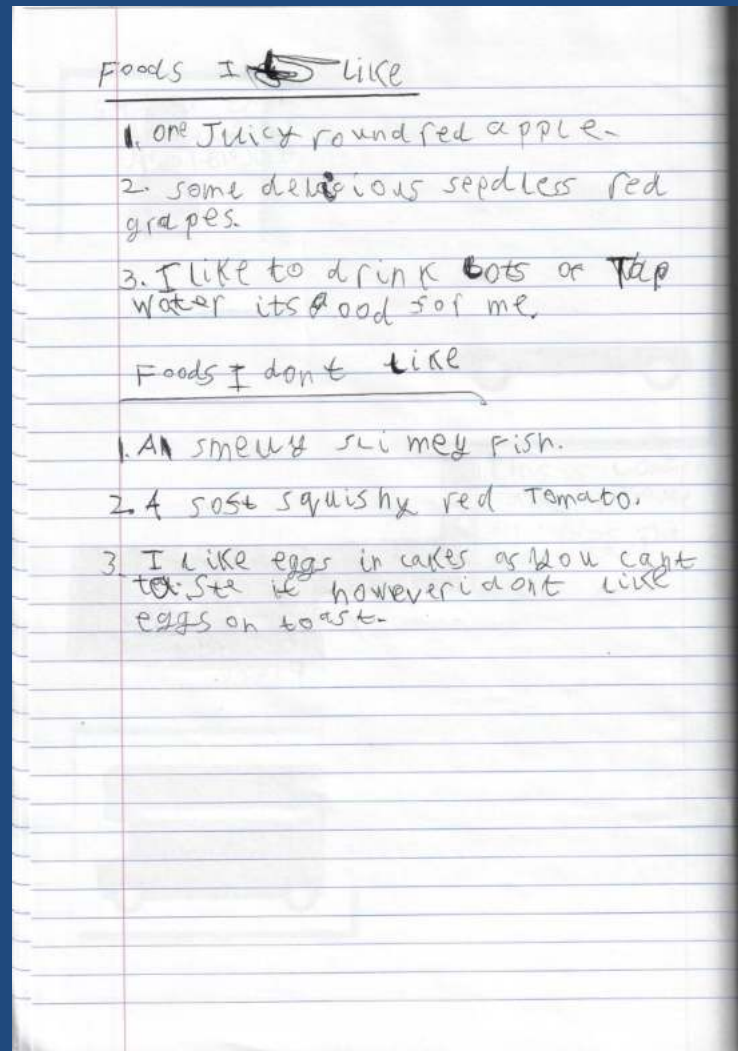 Foods I like
1. one Juicy round red apple.
2. some delicious seedless red
grapes.
3. I like to drink Lots of Tap
water its good for me.
Foods I dont like
1. A smelly slimey Fish.
2. A soft squishy red Tomato.
3. I like eggs in cakes as you cant
taste it however i dont like
eggs on toast.